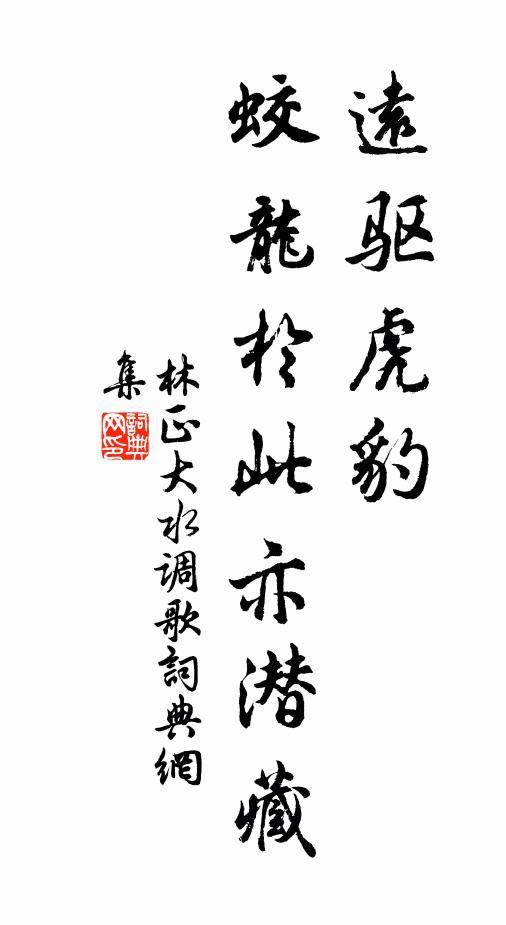 遠驱虎豹
蛟龍於此亦潜藏
林正大水调歌詞典網
集
詞典网印